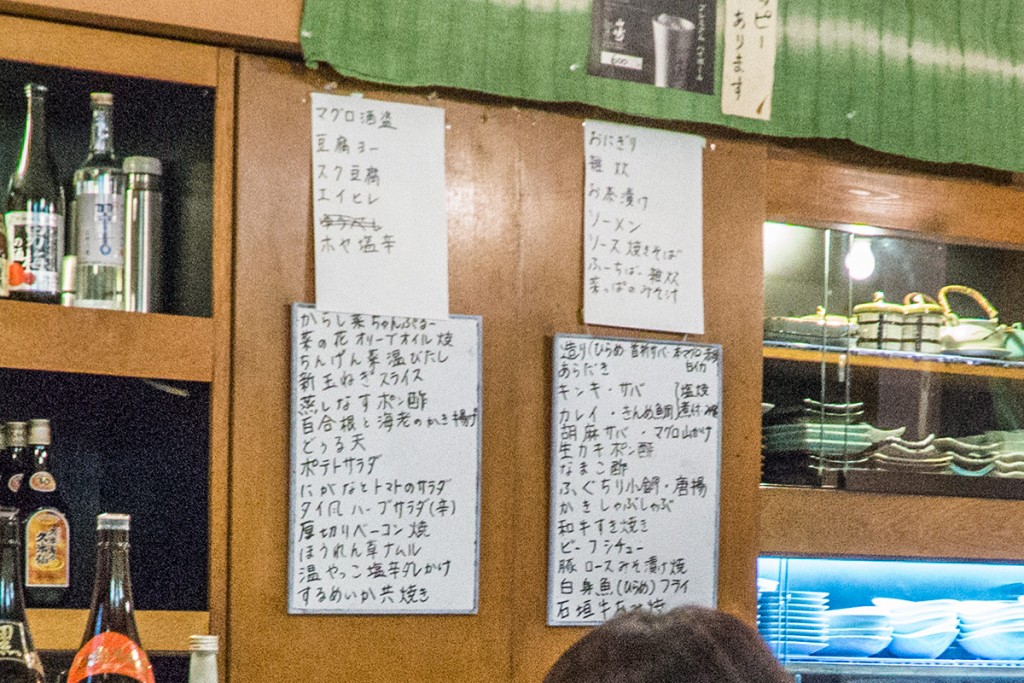 マグロ酒盗
豆腐ヨー
スク豆腐
エイヒレ
ホヤ塩辛
おにぎり
雑炊
お茶漬け
ソーメン
ソース焼きそば
ふーちばー雑炊
菜っぱのみそ汁
からし菜ちゃんぷるー
菜の花オリーブオイル焼
ちんげん菜温びたし
新玉ねぎスライス
蒸しなすポン酢
百合根と海老のかき揚げ
どぅる天
ポテトサラダ
にがなとトマトのサラダ
タイ風ハーブサラダ(辛)
厚切りベーコン焼
ほうれん草ナムル
温やっこ塩辛ダレかけ
するめいか共焼き
造り(ひらめ・昔新サバ・本マグロ
白イカ
あらだき
キンキ・サバ 塩焼
カレイ・きんめ鯛 煮付
胡麻サバ・マグロ山かけ
生カキポン酢
なまこ酢
ふぐちり小鍋・唐揚
かきしゃぶしゃぶ
和牛すき焼き
ビーフシチュー
豚ロースみそ漬け焼
白身魚(ひらめ)フライ
石垣牛
プレミアム
600
ッピー
あります